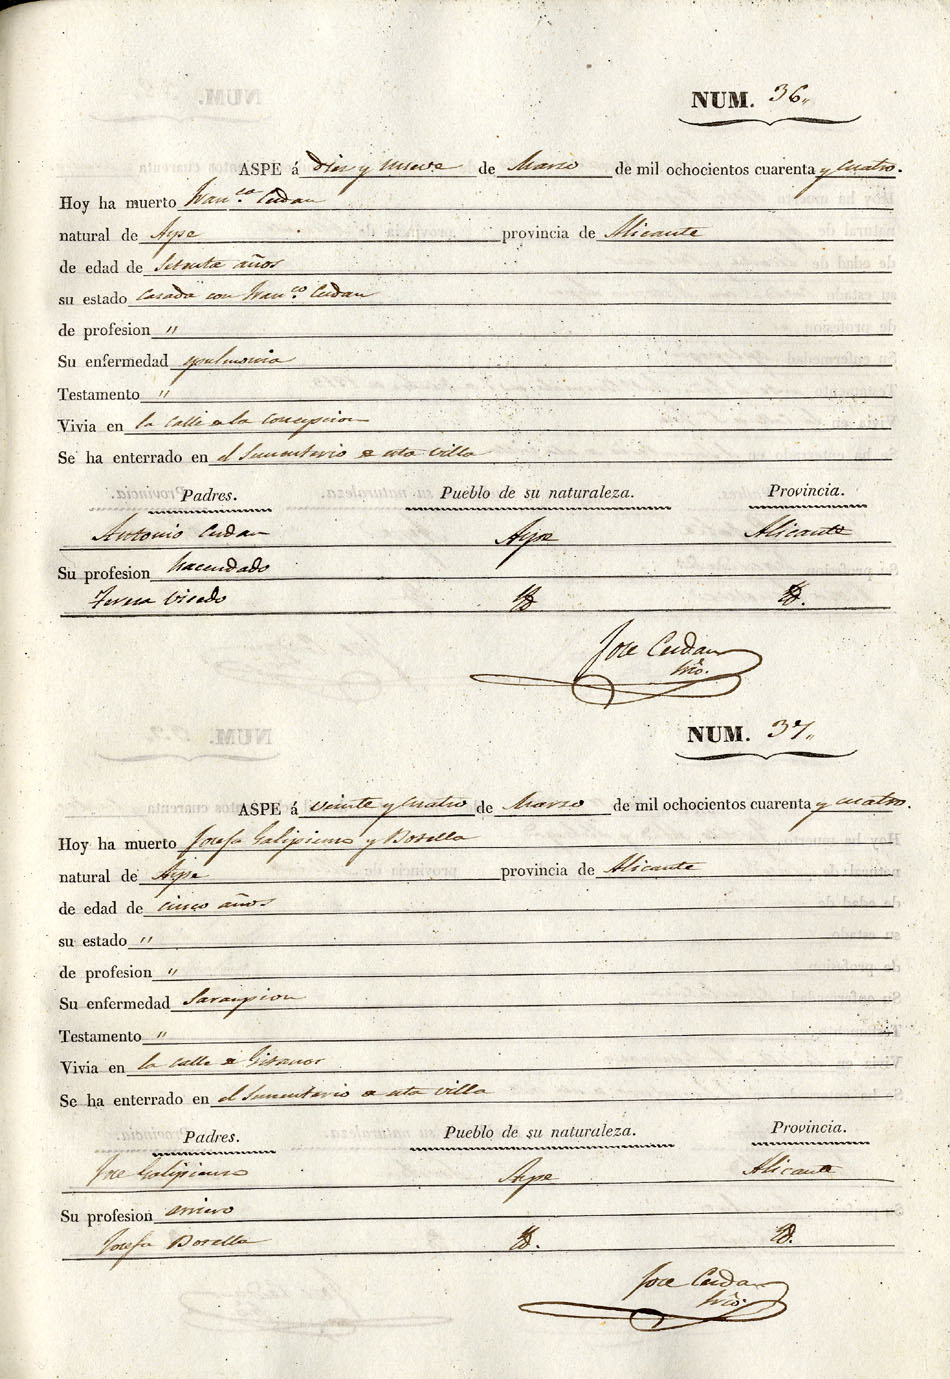 NUM. 36"
ASPE á Diez y nueve de Marzo de mil ochocientos cuarenta y cuatro.
Hoy ha muerto Franca. Cerdan
natural de Aspe provincia de Alicante
de edad de setenta años
su estado casada con Franco. Cerdan
de profesion "
Su enfermedad pulmonia
Testamento "
Vivia en la calle de la Concepcion
Se ha enterrado en el Sementerio de esta villa
Padres. Pueblo de su naturaleza. Provincia.
Antonio Cerdan Aspe Alicante
Su profesion hacendado
Teresa Vicedo Yd. Yd.
Jose Cerdan
Srio.
NUM. 37"
ASPE á veinte y cuatro de Marzo de mil ochocientos cuarenta y cuatro.
Hoy ha muerto Josefa Galipienso y Botella
natural de Aspe provincia de Alicante
de edad de cinco años
su estado "
de profesion "
Su enfermedad Sarampion
Testamento "
Vivia en la calle de Gitanos
Se ha enterrado en el Sementerio de esta villa
Padres. Pueblo de su naturaleza. Provincia.
Jose Galipienso Aspe Alicante
Su profesion arriero
Josefa Botella Yd. Yd.
Jose Cerdan
Srio.